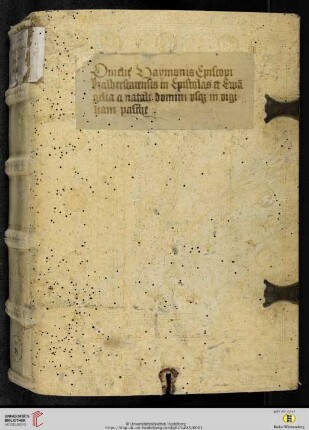 Omelie Haymonis Episcopi
Halberstatensis in Epistolas et Ewā
gelia a natali domini vsqȝ in vigi
liam pasche
UNIVERSITÄTS-
BIBLIOTHEK
HEIDELBERG
© Universitätsbibliothek Heidelberg
Baden-Württemberg